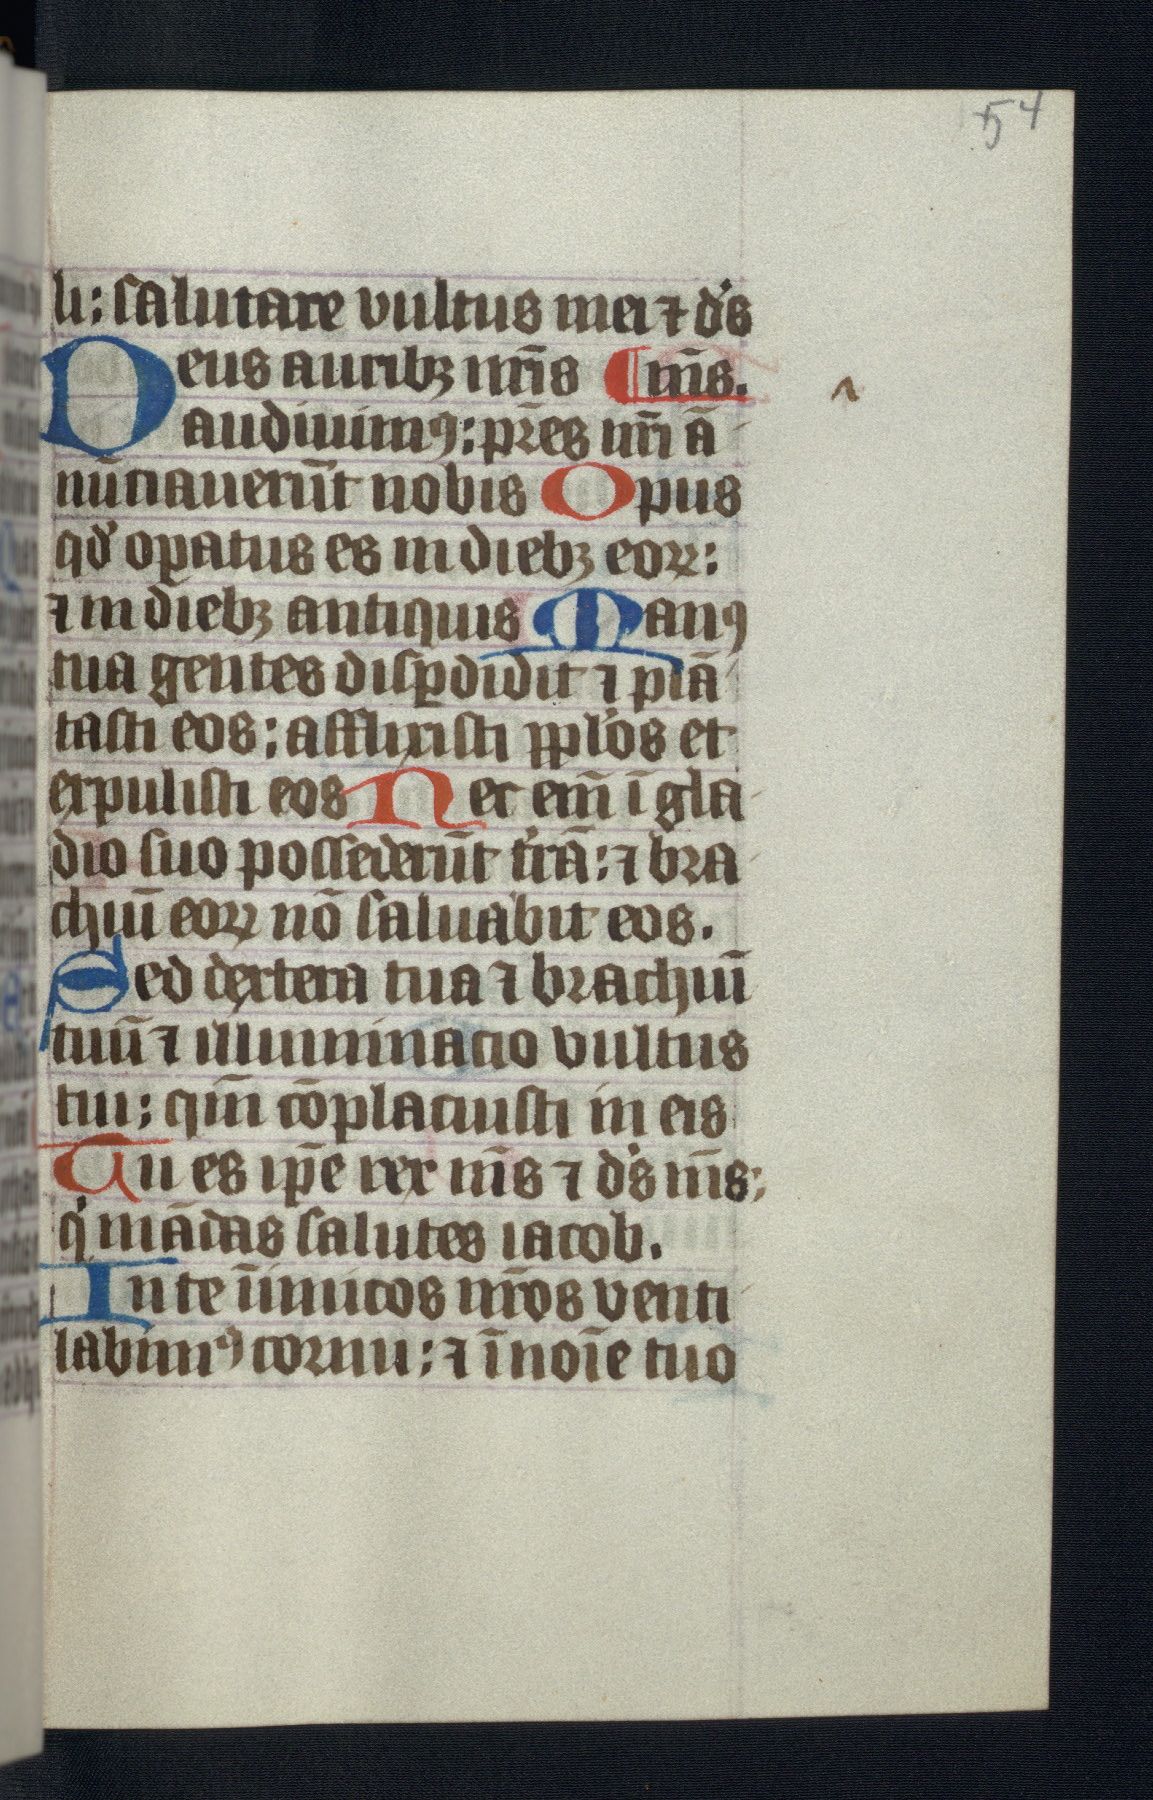 54
li: salutare vultus mei ⁊ d's
Deus auribꝫ nr̄is ¶ m̄s.
audiuimꝯ: pr̄es nr̄i ā
nūciauerūt nobis Opus
qd' oꝑatus es in diebꝫ eoꝝ:
⁊ in diebꝫ antiquis Manꝯ
tua gentes disꝑdidit ⁊ plā
tasti eos: afflixisti ppl'os et
expulisti eos Nec em̄ ī gla
dio suo possederūt t'rā: ⁊ bra
chiū eoꝝ nō saluabit eos.
Sed dextera tua ⁊ brachiū
tuū ⁊ illuminacio vultus
tui: qm̄ cōplacuisti in eis
Tu es ip̄e rex m̄s ⁊ d's m̄s:
q' mādas salutes iacob.
In te īimicos nr̄os venti
labimꝯ cornu: ⁊ ī noīe tuo